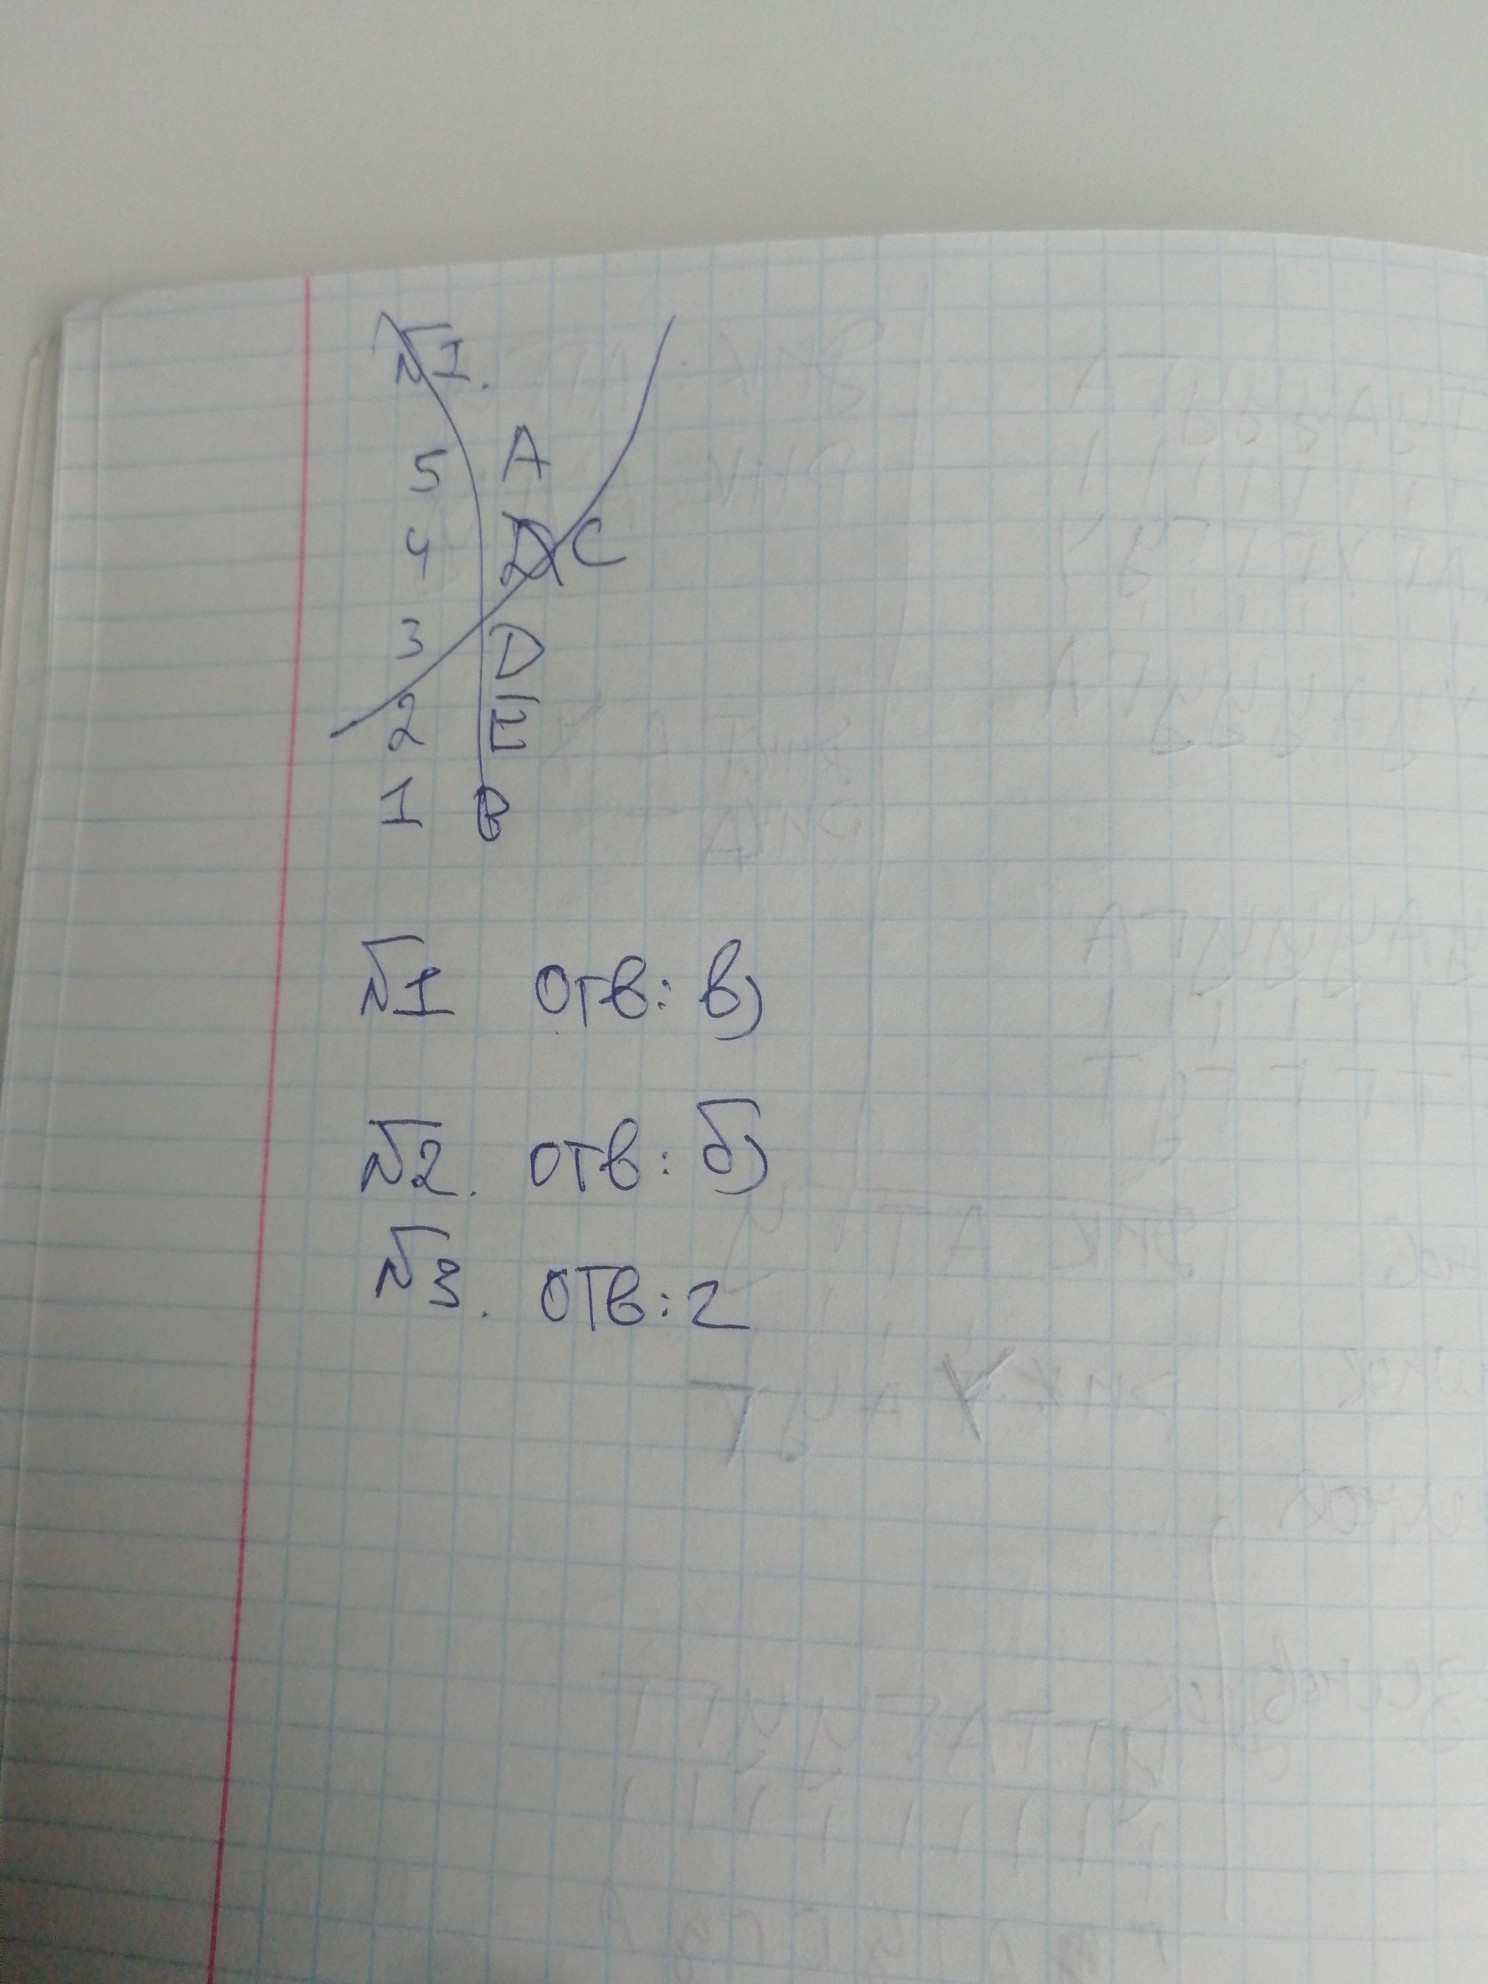 №1.
5 A
4 D C
3 D
2 E
1 B
№1 отв: в)
№2. отв: б)
№3. отв: г